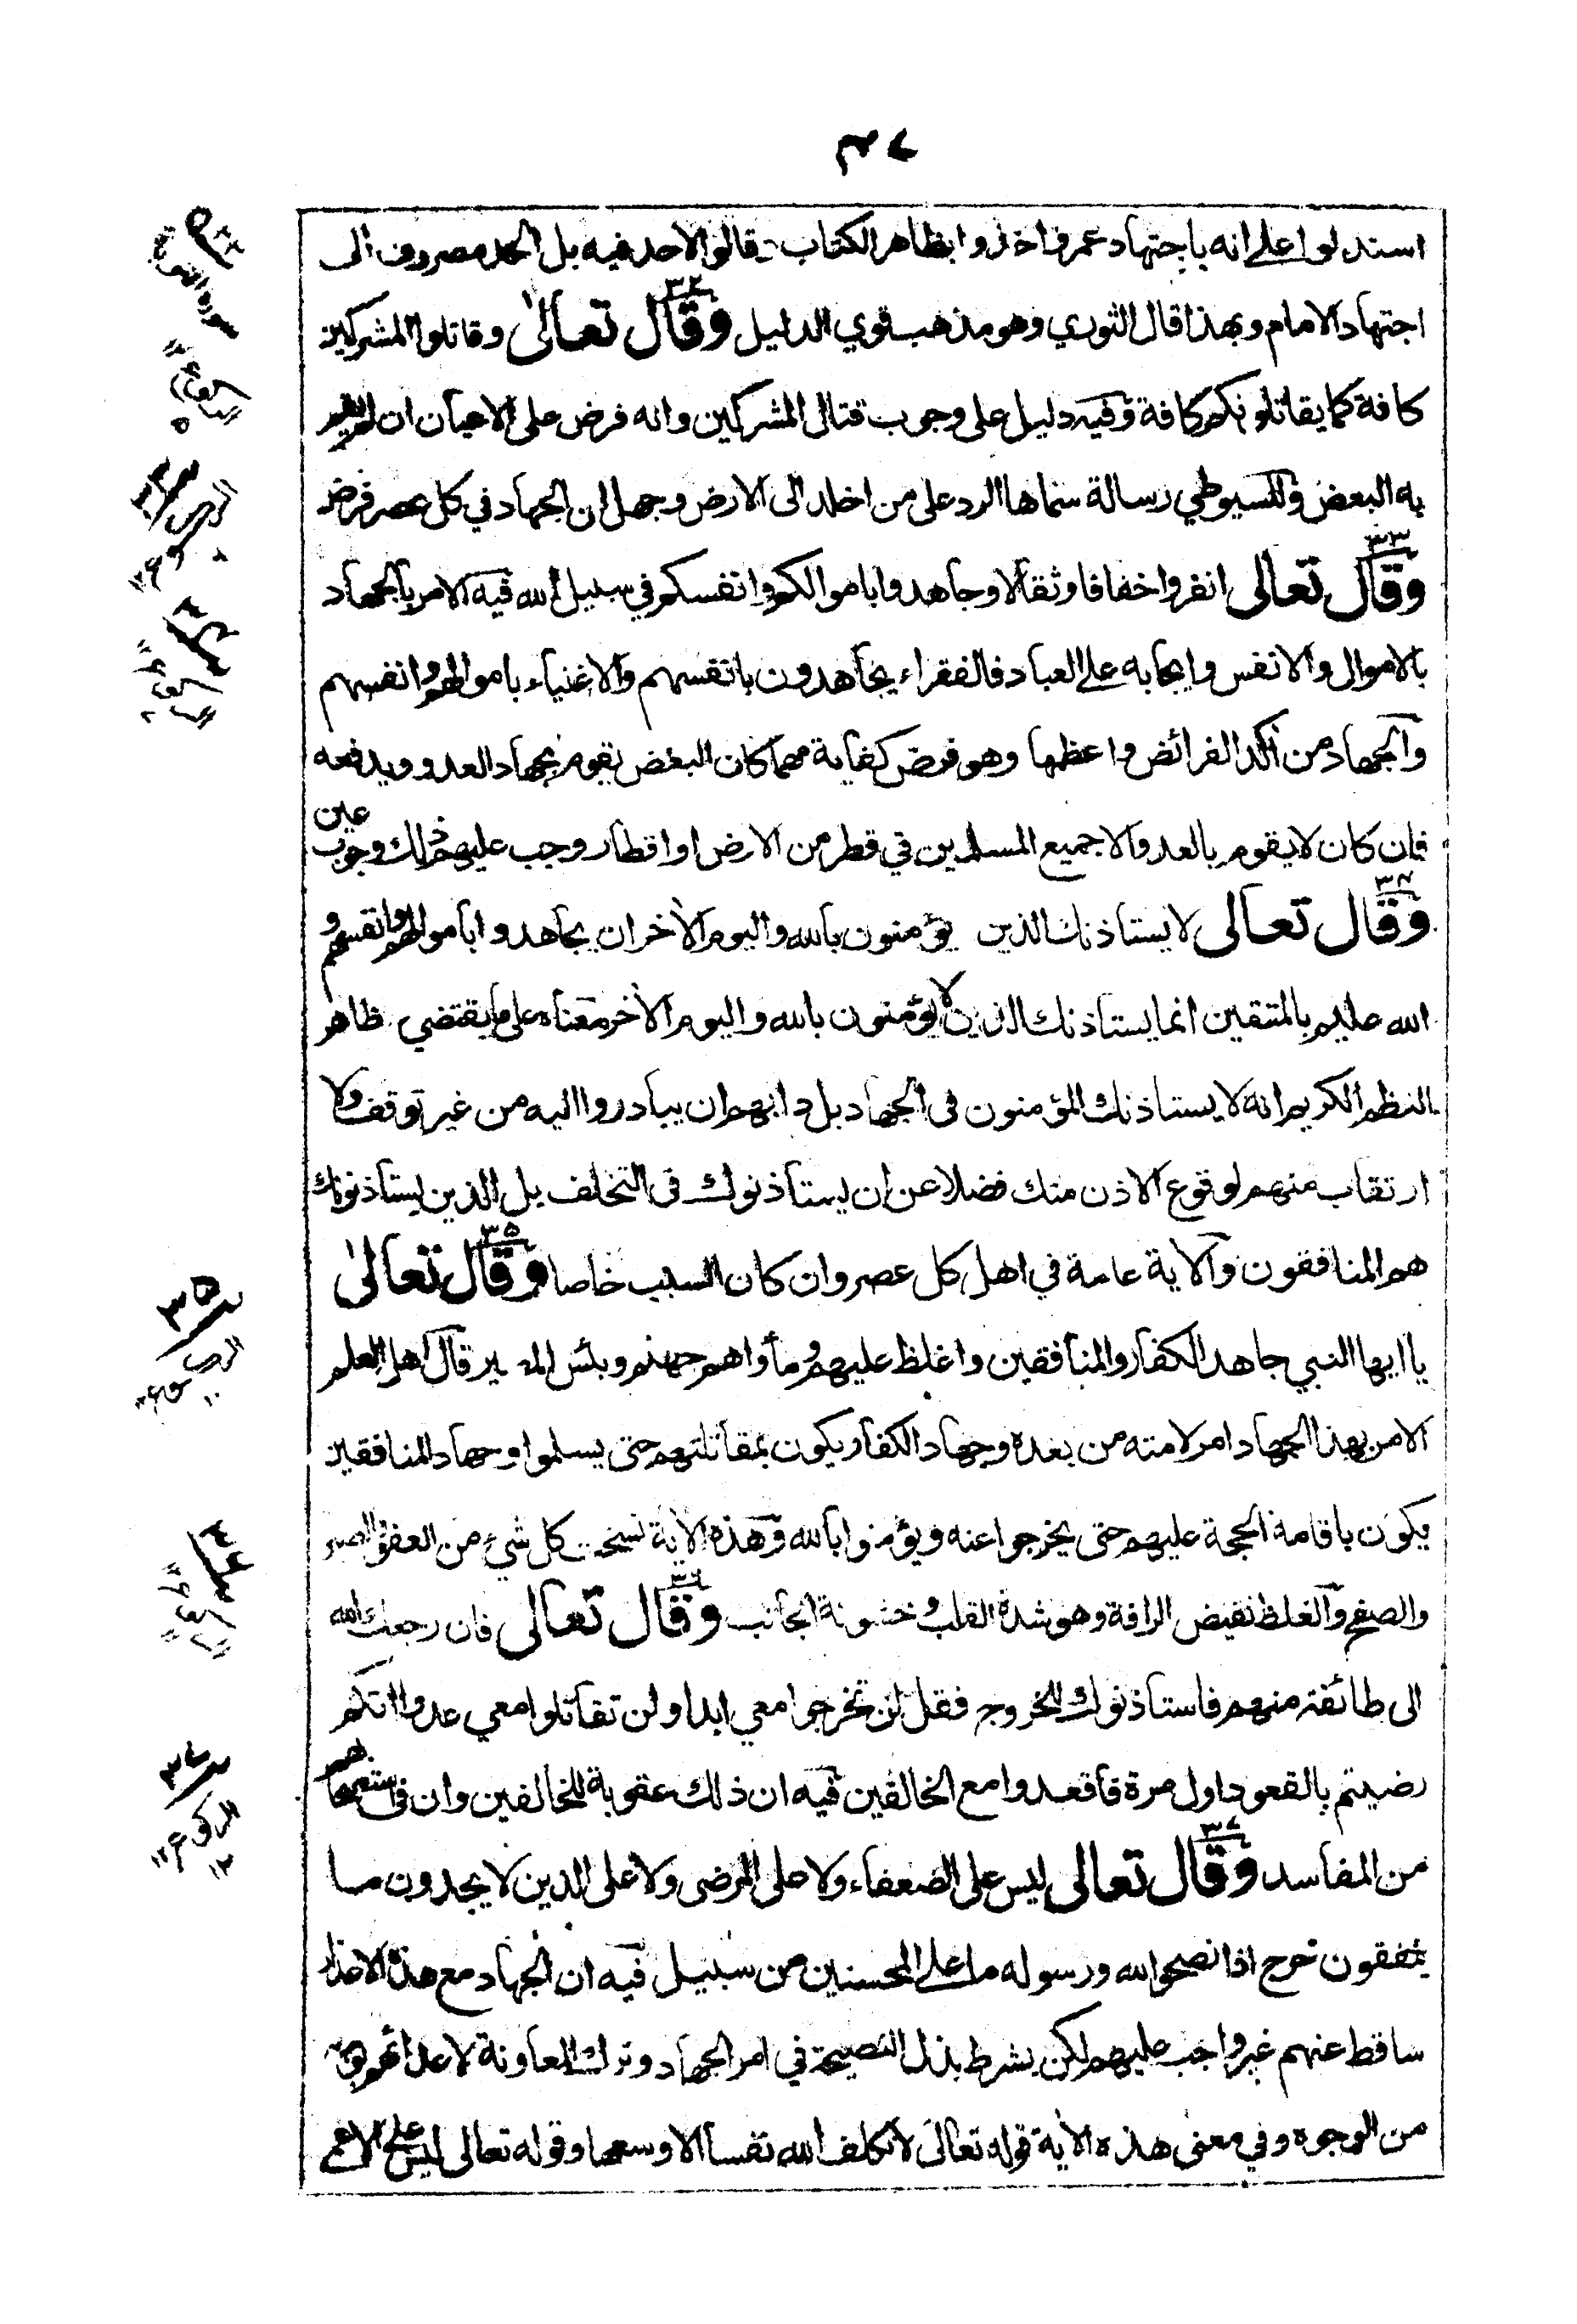 ٣٧
استدلوا على انه باجتهاد عمر فاخذوا بظاهر الكتاب قالوا لاحد فيه بل الحد مصروف الى
اجتهاد الامام وبهذا قال الثوري وهو مذهب قوي الدليل وقال تعالىٰ وقاتلوا المشركين
٣٢
كافة كما يقاتلونكم كافة وفيه دليل على وجوب قتال المشركين وانه فرض على الاعيان ان لم يقم
به البعض وللسيوطي رسالة سماها الرد على من اخلد الى الارض وجهل ان الجهاد في كل عصر فرض
٣٣
وقال تعالى انفروا خفافا وثقالا وجاهدوا باموالكم وانفسكم في سبيل الله فيه الامر بالجهاد
بالاموال والانفس وايجابه على العباد فالفقراء يجاهدون بانفسهم والاغنياء باموالهم وانفسهم
والجهاد من آكد الفرائض واعظمها وهو فرض كفاية مهما كان البعض يقوم بجهاد العدو ويدفعه
فان كان لا يقوم بالعدو الا جميع المسلمين في قطر من الارض او اقطار وجب عليهم ذلك وجوب عين
٣٤
وقال تعالى لا يستاذنك الذين يؤمنون بالله واليوم الاخر ان يجاهدوا باموالهم وانفسهم و
الله عليم بالمتقين انما يستاذنك الذين لا يؤمنون بالله واليوم الاخر معناه على ما يقتضي ظاهر
النظم الكريم انه لا يستاذنك المؤمنون في الجهاد بل دابهم ان يبادروا اليه من غير توقف ولا
ارتقاب منهم لوقوع الاذن منك فضلا عن ان يستاذنوك في التخلف بل الذين يستاذنونك
هم المنافقون والاية عامة في اهل كل عصر وان كان السبب خاصا وقال تعالىٰ
٣٥
يا ايها النبي جاهد الكفار والمنافقين واغلظ عليهم ومأواهم جهنم وبئس المصير قال اهل العلم
الامر بهذا الجهاد امر لامته من بعده وجهاد الكفار يكون بمقاتلتهم حتى يسلموا وجهاد المنافقين
يكون باقامة الحجة عليهم حتى يخرجوا عنه ويؤمنوا بالله وهذه الاية نسخت كل شيء من العفو والصبر
والصفح والغلظ نقيض الرافة وهو شدة القلب وخشونة الجانب وقال تعالى فان رجعك الله
٣٦
الى طائفة منهم فاستاذنوك للخروج فقل لن تخرجوا معي ابدا ولن تقاتلوا معي عدوا انكم
رضيتم بالقعود اول مرة فاقعدوا مع الخالفين فيه ان ذلك عقوبة للخالفين وان في استصحابهم
من المفاسد وقال تعالى ليس على الضعفاء ولا على المرضى ولا على الذين لا يجدون ما
٣٧
ينفقون حرج اذا نصحوا لله ورسوله ما على المحسنين من سبيل فيه ان الجهاد مع هذه الاعذار
ساقط عنهم غير واجب عليهم لكن بشرط بذل النصيحة في امر الجهاد وترك المعاونة لاعدائهم بوجه
من الوجوه وفي معنى هذه الاية قوله تعالى لا تكلف الله نفسا الا وسعها وقوله تعالى ليس على الاعمى
٣٥
٣٦
٣٧